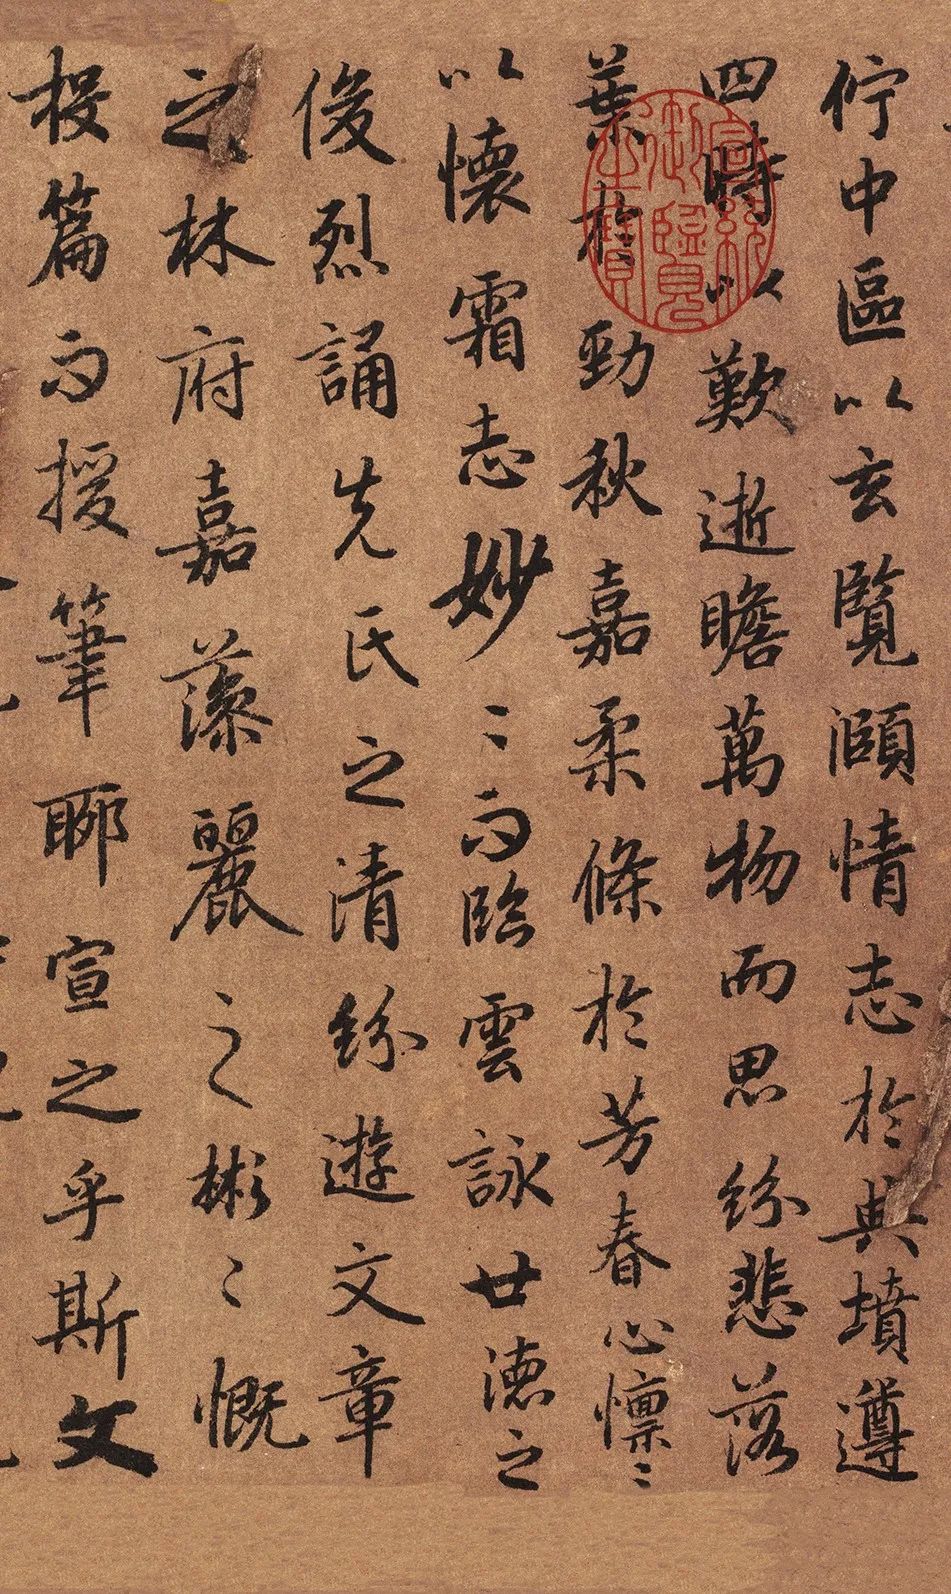 佇中區以玄覽頤情志於典墳遵
四時以歎逝瞻萬物而思紛悲落
葉於勁秋嘉柔條於芳春心懍〻
以懷霜志妙〻而臨雲詠世德之
俊烈誦先民之清紛遊文章
之林府嘉藻麗之彬〻慨
投篇而援筆聊宣之乎斯文
宣統御覽之寶